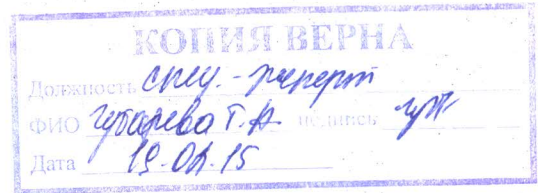 КОПИЯ ВЕРНА
Должность спец.-эксперт
ФИО Губарева Т.А. подпись
Дата 19.02.15